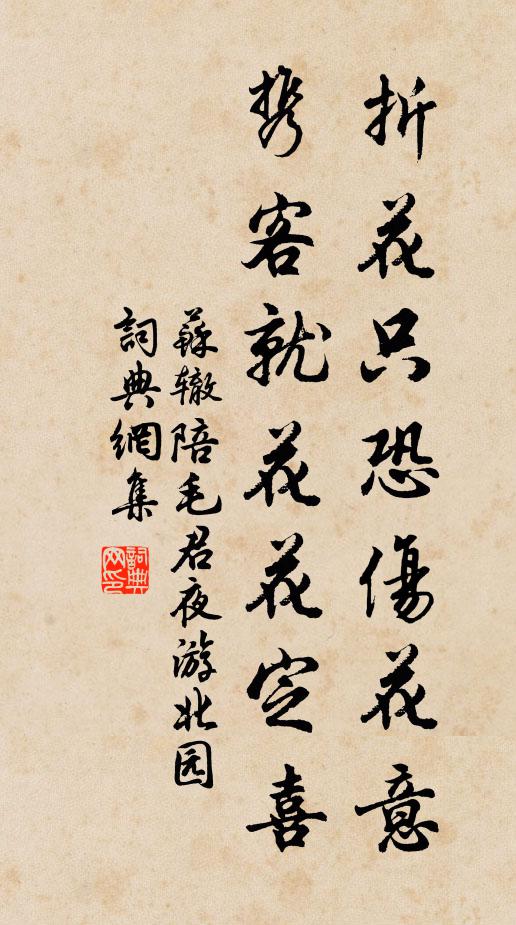 折花只恐傷花意
携客就花花定喜
蘇辙陪毛君夜游北园
詞典網集
詞典网印